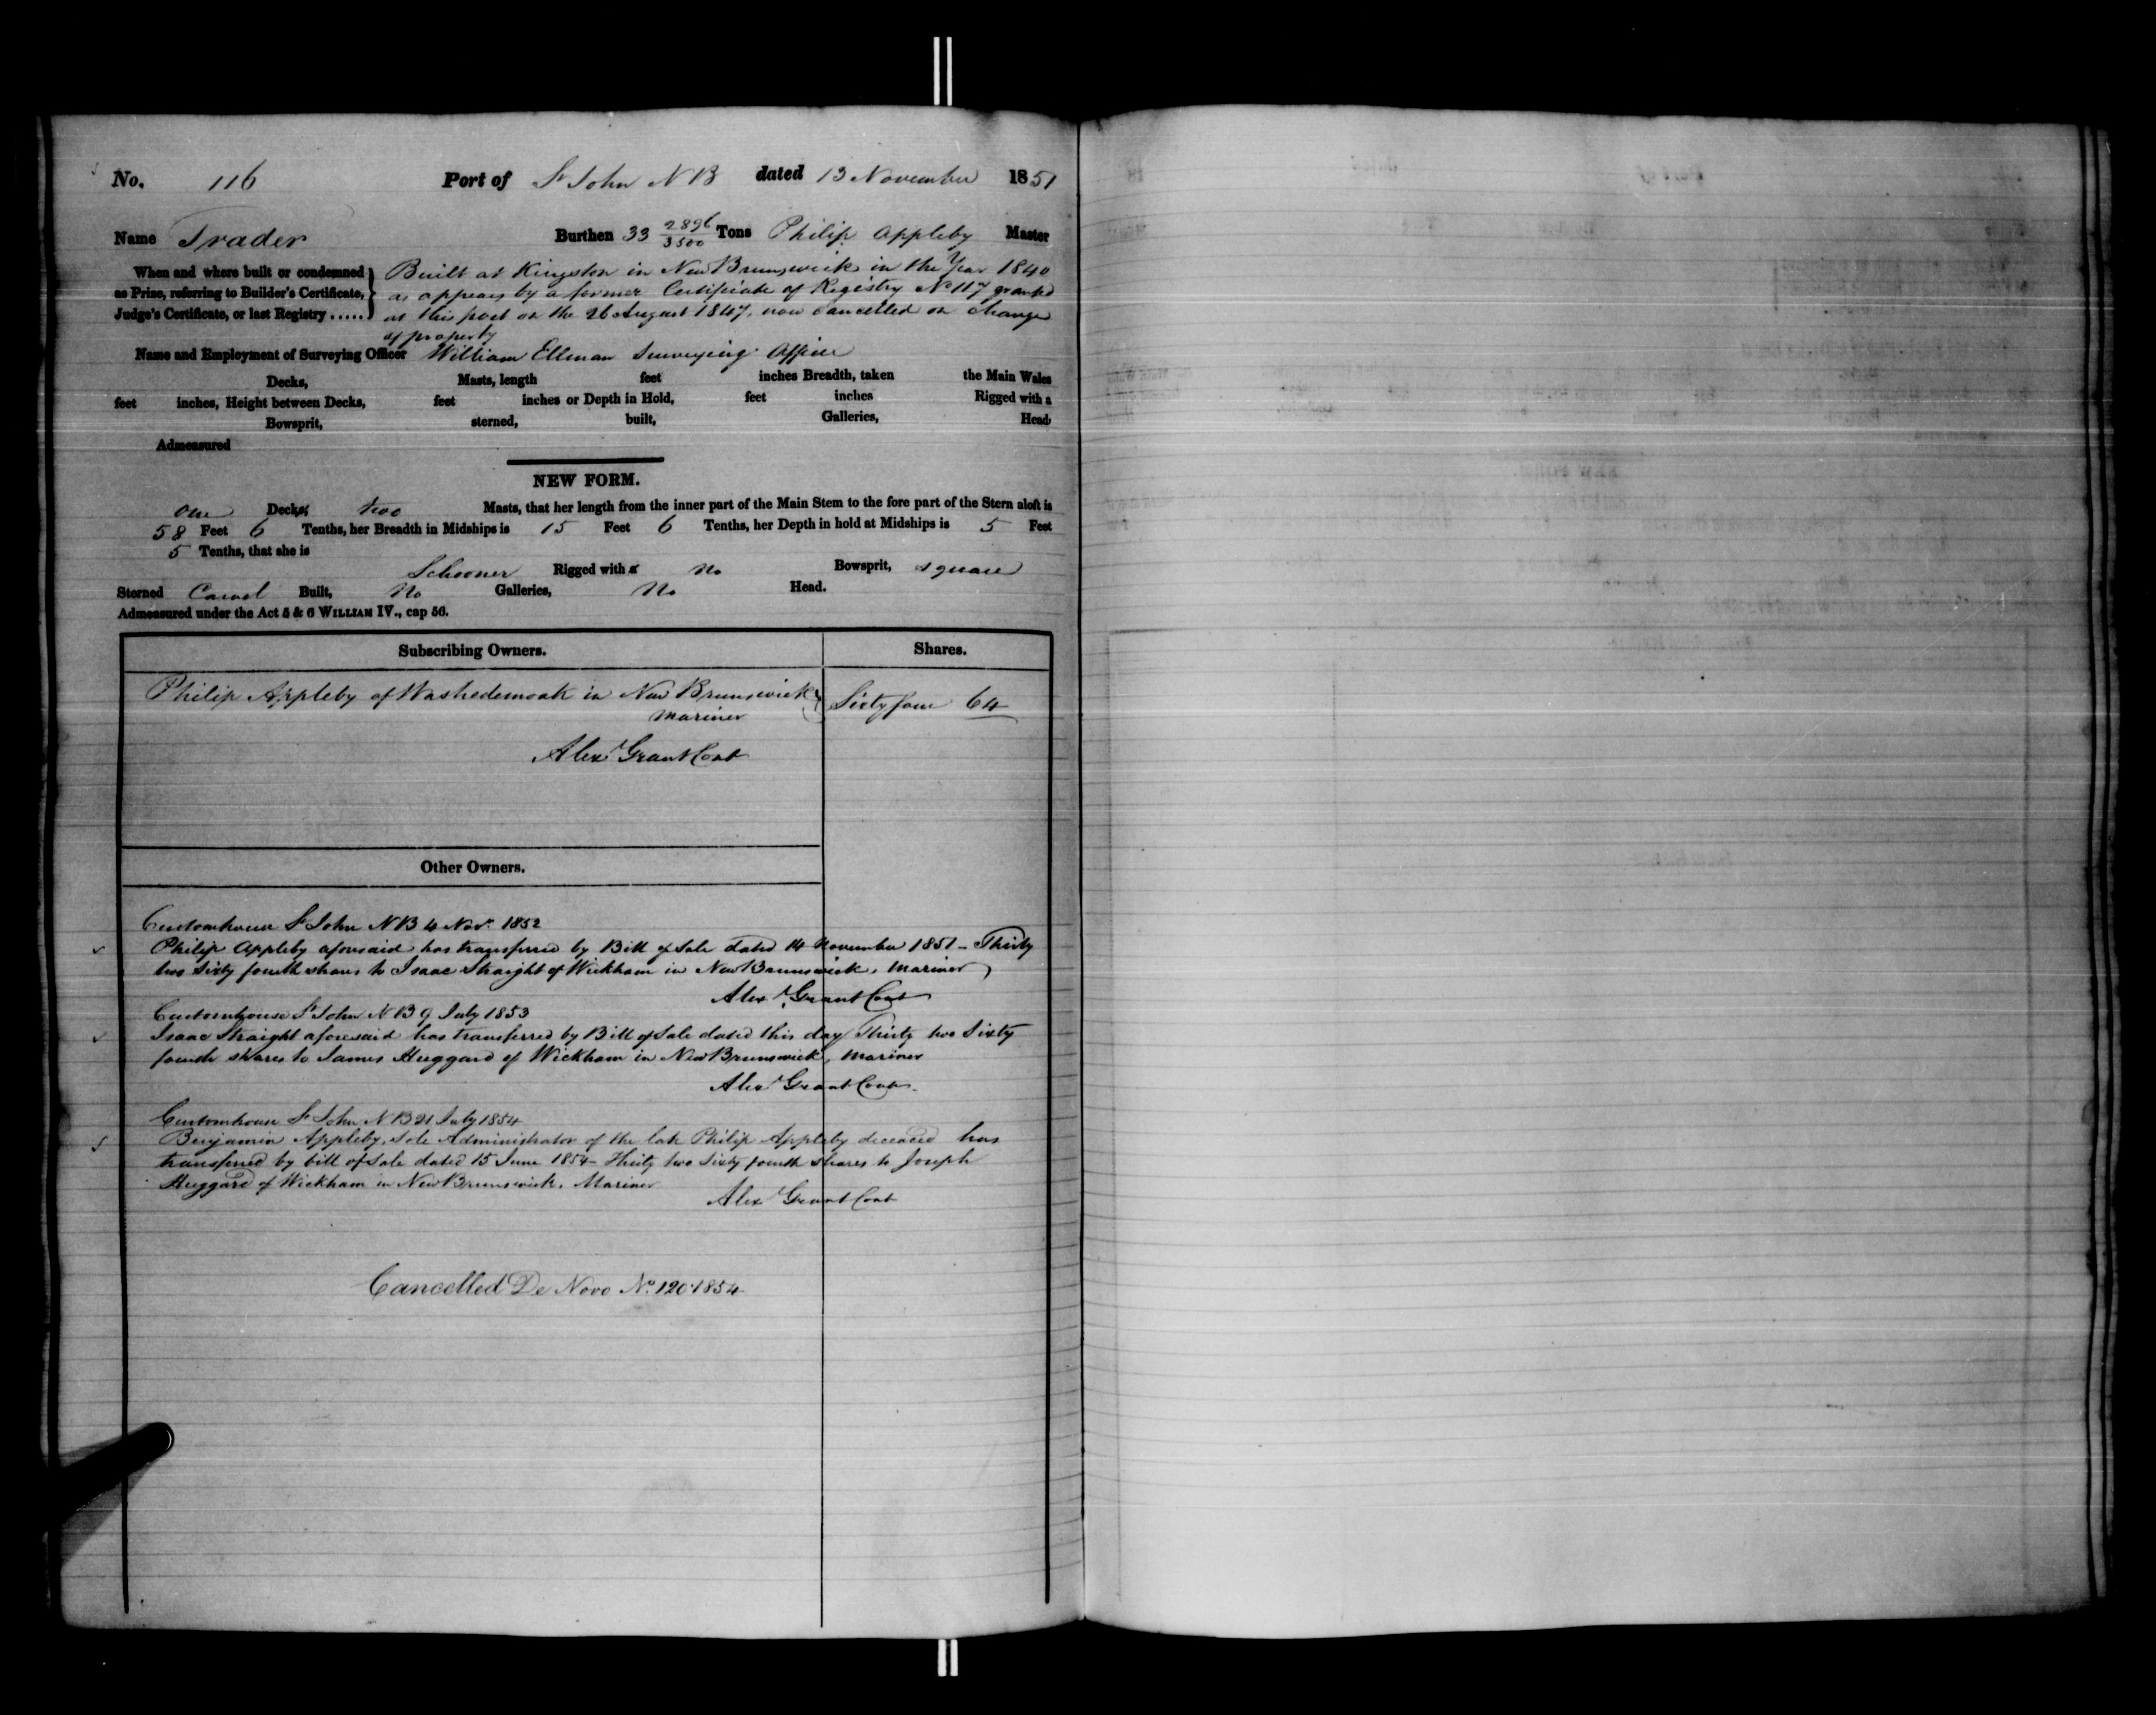 No. 116 Port of St John N B dated 13 November 1851
Name Trader Burthen 33 2896/3500 Tons Philip Appleby Master
When and where built or condemned as Prize, referring to Builder's Certificate, Judge's Certificate, or last Registry .....
Built at Kingston in New Brunswick in the Year 1840
as appears by a former Certificate of Registry No 117 granted
at this port on the 26 August 1847, now cancelled on change
of property
Name and Employment of Surveying Officer William Ellman Surveying Officer
Decks, Masts, length feet inches Breadth, taken the Main Wales
feet inches, Height between Decks, feet inches or Depth in Hold, feet inches Rigged with a
Bowsprit, sterned, built, Galleries, Head
Admeasured
NEW FORM.
One Decks, two Masts, that her length from the inner part of the Main Stem to the fore part of the Stern aloft is
58 Feet 6 Tenths, her Breadth in Midships is 15 Feet 6 Tenths, her Depth in hold at Midships is 5 Feet
5 Tenths, that she is
Schooner Rigged with a no Bowsprit, square
Sterned Carvel Built, No Galleries, No Head.
Admeasured under the Act 5 & 6 WILLIAM IV., cap 56.
Subscribing Owners. Shares.
Philip Appleby of Washedemoak in New Brunswick Sixty four 64
Mariner
Alexr Grant Cont
Other Owners.
Customhouse St John N B 4 Novr 1852
Philip Appleby aforesaid has transferred by Bill of Sale dated 14 November 1851 - Thirty
two Sixty fourth shares to Isaac Straight of Wickham in New Brunswick, Mariner
Alexr Grant Cont
Customhouse St John N B 9 July 1853
Isaac Straight aforesaid has transferred by Bill of Sale dated this day Thirty two Sixty
fourth shares to James Huggard of Wickham in New Brunswick, Mariner
Alexr Grant Cont
Customhouse St John N B 21 July 1854
Benjamin Appleby, Sole Administrator of the late Philip Appleby deceased has
transferred by bill of Sale dated 15 June 1854 - Thirty two Sixty fourth shares to Joseph
Huggard of Wickham in New Brunswick, Mariner
Alexr Grant Cont
Cancelled De Novo No. 120.1854